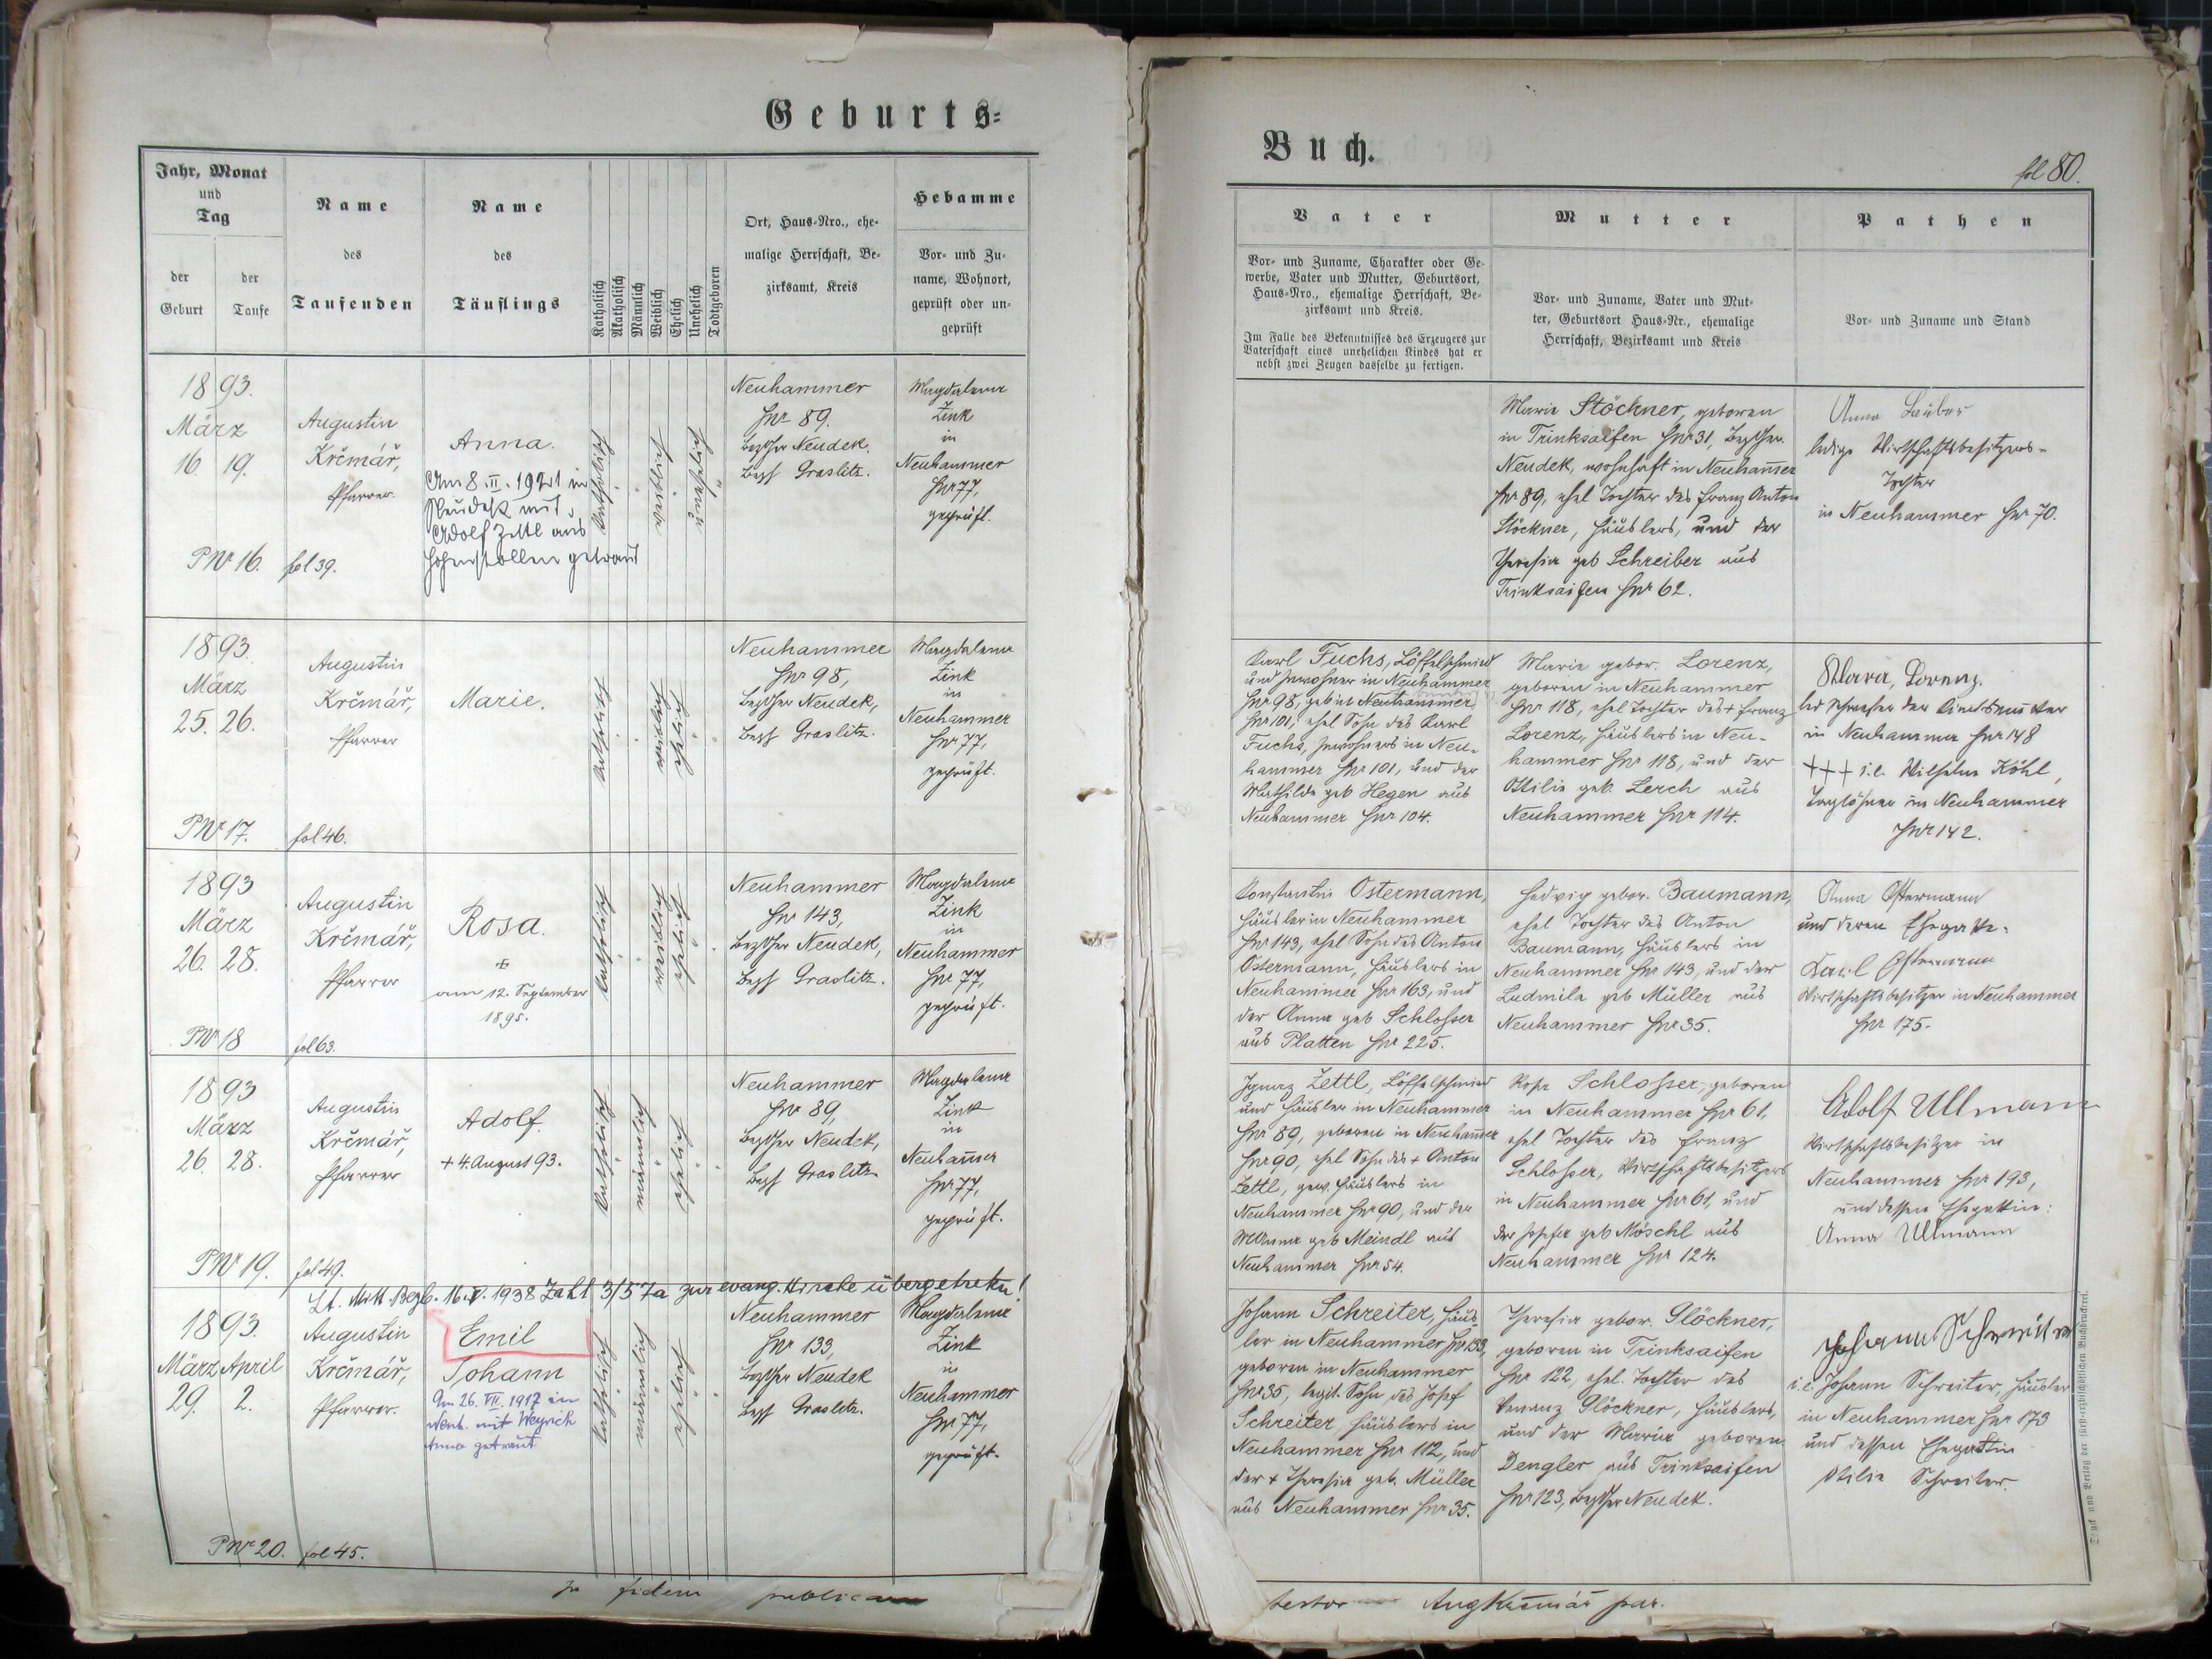 Geburts-
Jahr, Monat
und
Tag
der
Geburt
der
Taufe
Name
des
Taufenden
Name
des
Täuflings
Katholisch
Akatholisch
Männlich
Weiblich
Ehelich
Unehelich
Todtgeboren
Ort, Haus-Nro., ehe-
malige Herrschaft, Be-
zirksamt, Kreis
Hebamme
Vor- und Zu-
name, Wohnort,
geprüft oder un-
geprüft
1893.
März
16. 19.
PNr 16. fol 39.
Augustin
Krčmář,
Pfarrer.
Anna.
Am 8.II.1921 in
Neudek mit
Adolf Zettl aus
Hohenstollen getraut
katholisch
weiblich
Neuhammer
HNr 89.
BezGer Neudek.
BezH Graslitz.
Magdalena
Zink
in
Neuhammer
HNr 77,
geprüft.
1893.
März
25. 26.
PNr 17. fol 46.
Augustin
Krčmář,
Pfarrer
Marie.
katholisch
weiblich
ehelich
Neuhammer
HNr 98,
BezGer Neudek,
BezH Graslitz.
Magdalena
Zink
in
Neuhammer
HNr 77,
geprüft.
1893
März
26. 28.
PNr 18 fol 63.
Augustin
Krčmář,
Pfarrer
Rosa.
am 12. September
1895.
katholisch
weiblich
ehelich
Neuhammer
HNr 143,
BezGer Neudek,
BezH Graslitz.
Magdalena
Zink
in
Neuhammer
HNr 77,
geprüft.
1893
März
26. 28.
PNr 19. fol 49.
Augustin
Krčmář,
Pfarrer
Adolf.
+ 4. August 93.
katholisch
männlich
ehelich
Neuhammer
HNr 89,
BezGer Neudek,
BezH Graslitz
Magdalena
Zink
in
Neuham̄er
HNr 77,
geprüft.
Lt. Mitt. Bezb. 16.V.1938 Zahl 3/5 7a zur evang. Kirche übergetreten!
1893.
März April
29. 2.
PNr 20. fol 45.
Augustin
Krčmář,
Pfarrer.
Emil
Johann
Am 26.VII.1917 in
Neuh. mit Weyrich
Anna getraut
katholisch
männlich
ehelich
Neuhammer
HNr 133,
BezGer Neudek
BezH Graslitz.
Magdalena
Zink
in
Neuhammer
HNr 77,
geprüft.
In fidem publicam
Buch.
fol 80.
Vater
Vor- und Zuname, Charakter oder Ge-
werbe, Vater und Mutter, Geburtsort,
Haus-Nro., ehemalige Herrschaft, Be-
zirksamt und Kreis.
Im Falle des Bekenntnisses des Erzeugers zur
Vaterschaft eines unehelichen Kindes hat er
nebst zwei Zeugen dasselbe zu fertigen.
Mutter
Vor- und Zuname, Vater und Mut-
ter, Geburtsort Haus-Nr., ehemalige
Herrschaft, Bezirksamt und Kreis
Pathen
Vor- und Zuname und Stand
Marie Stöckner, geboren
in Trinksaifen HNr 31, BezGer.
Neudek, wohnhaft in Neuham̄er
HNr 89, ehel Tochter des Franz Anton
Stöckner, Häuslers, und der
Theresia geb Schreiber aus
Trinksaifen HNr 62.
Anna
ledige Wirtschaftsbesitzers-
Tochter
in Neuhammer HNr 70.
Karl Fuchs, Löffelschmied
und Inwohner in Neuhammer
HNr 98, geb in Neuhammer
HNr 101, ehel Sohn des Karl
Fuchs, Inwohners in Neu-
hammer HNr 101, und der
Mathilde geb Hegen aus
Neuhammer HNr 104.
Marie gebor. Lorenz,
geboren in Neuhammer
HNr 118, ehel Tochter des + Franz
Lorenz, Häuslers in Neu-
hammer HNr 118, und der
Ottilie geb. Lerch aus
Neuhammer HNr 114.
Klara, Lorenz.
led Schwester der Kindsmutter
in Neuhammer HNr 148
+++ i.e. Wilhelm Köhl,
Taglöhner in Neuhammer
HNr 142.
Konstantin Ostermann,
Häusler in Neuhammer
HNr 143, ehel Sohn des Anton
Ostermann, Häuslers in
Neuhammer HNr 163, und
der Anna geb Schlosser
aus Platten HNr 225.
Hedwig gebor. Baumann,
ehel Tochter des Anton
Baumann, Häuslers in
Neuhammer HNr 143, und der
Ludmila geb Müller aus
Neuhammer HNr 35.
Anna Ostermann
und deren Ehegatte:
Ostermann
Wirtschaftsbesitzer in Neuhammer
HNr 175.
Ignaz Zettl, Löffelschmied
und Häusler in Neuhammer
HNr 89, geboren in Neuham̄er
HNr 90, ehel Sohn des + Anton
Zettl, gew. Häuslers in
Neuhammer HNr 90, und der
geb Meindl aus
Neuhammer HNr 54.
Rosa Schlosser, geboren
in Neuhammer HNr 61,
ehel Tochter des Franz
Schlosser, Wirtschaftsbesitzers
in Neuhammer HNr 61, und
der Josefa geb Möschl aus
Neuhammer HNr 124.
Adolf Ullmann
Wirtschaftsbesitzer in
Neuhammer HNr 193,
und dessen Ehegattin:
Anna Ullmann
Johann Schreiter, Häus-
ler in Neuhammer HNr 133,
geboren in Neuhammer
HNr 35, legit. Sohn des Josef
Schreiter Häuslers in
Neuhammer HNr 112, und
der + Theresia geb. Müller
aus Neuhammer HNr 35.
Theresia gebor. Glöckner,
geboren in Trinksaifen
HNr 122, ehel. Tochter des
Venanz Glöckner, Häuslers,
und der Maria geboren
Dengler aus Trinksaifen
HNr 123, BezGer Neudek.
Johann Schreiter
i.e. Johann Schreiter, Häusler
in Neuhammer HNr 173
und dessen Ehegattin
Otilie Schreiter.
testor Aug Krčmář par.
Druck und Verlag der fürst-erzbischöflichen Buchdruckerei.